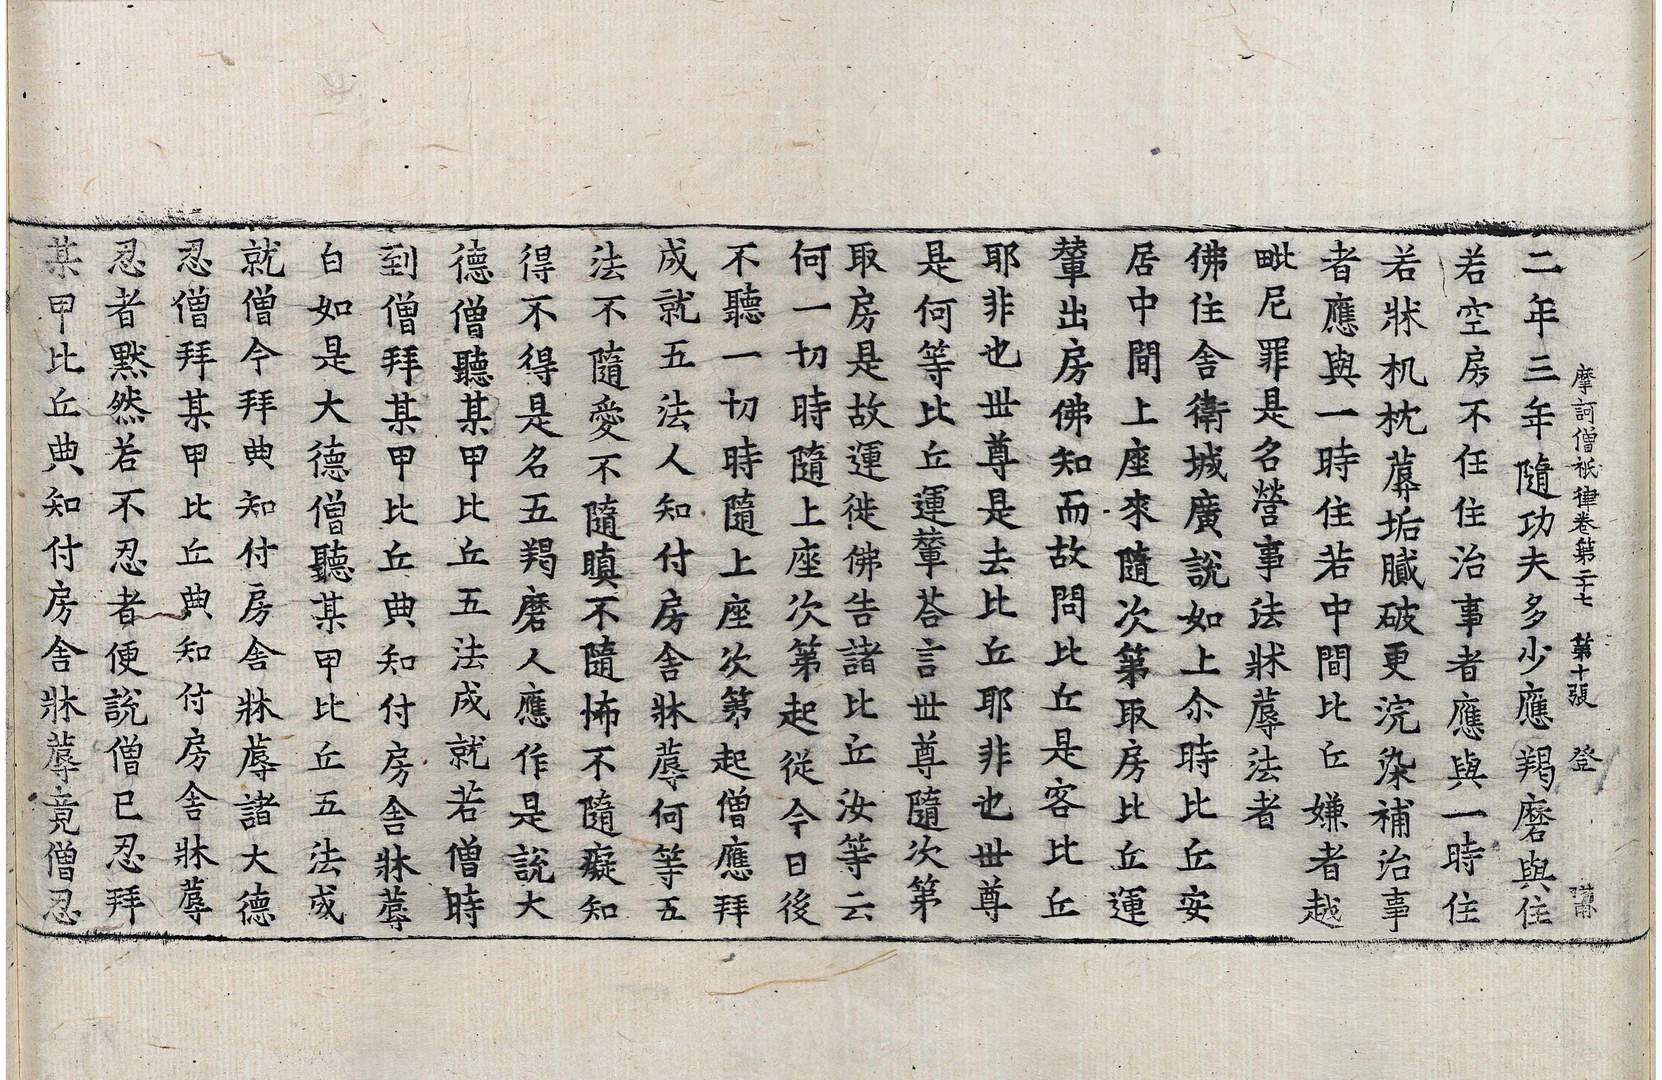 摩訶僧祇律卷第二十七 第十張 登
二年三年隨功夫多少應羯磨與住
若空房不任住治事者應與一時住
若牀机枕蓐垢膩破更浣染補治事
者應與一時住若中間比丘嫌者越
毗尼罪是名營事法牀蓐法者
佛住舍衛城廣說如上尒時比丘安
居中間上座來隨次第取房比丘運
輦出房佛知而故問比丘是客比丘
耶非也世尊是去比丘耶非也世尊
是何等比丘運輦荅言世尊隨次第
取房是故運徙佛告諸比丘汝等云
何一切時隨上座次第起從今日後
不聽一切時隨上座次第起僧應拜
成就五法人知付房舍牀蓐何等五
法不隨愛不隨瞋不隨怖不隨癡知
得不得是名五羯磨人應作是說大
德僧聽某甲比丘五法成就若僧時
到僧拜某甲比丘典知付房舍牀蓐
白如是大德僧聽某甲比丘五法成
就僧今拜典知付房舍牀蓐諸大德
忍僧拜某甲比丘典知付房舍牀蓐
忍者黙然若不忍者便說僧已忍拜
某甲比丘典知付房舍牀蓐竟僧忍